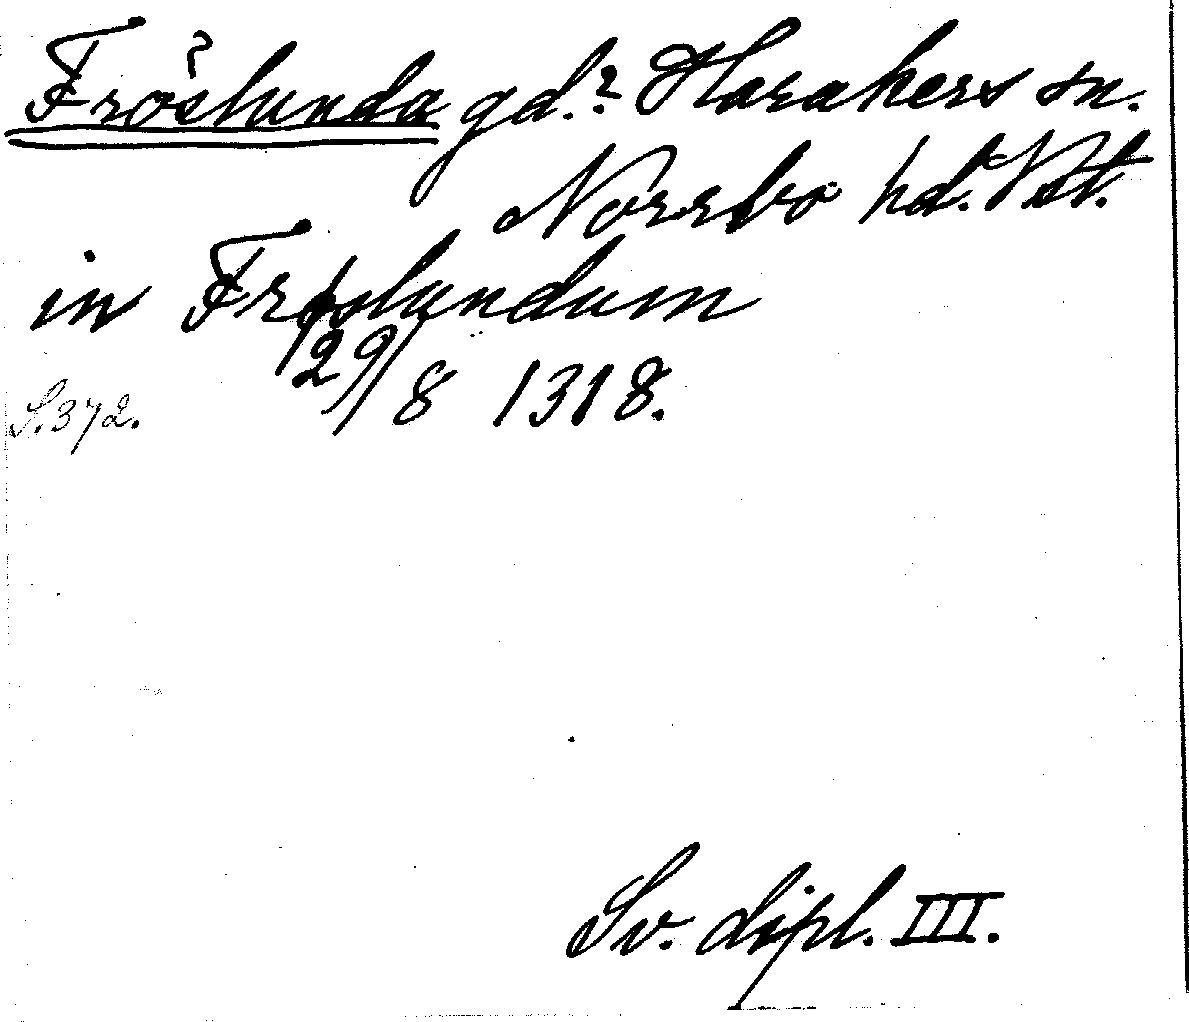 Fröslunda gd.? Harakers sn.
Norrbo hd. Vstm.
in Frøslundum
29/8 1318.
S. 372.
Sv. dipl. III.